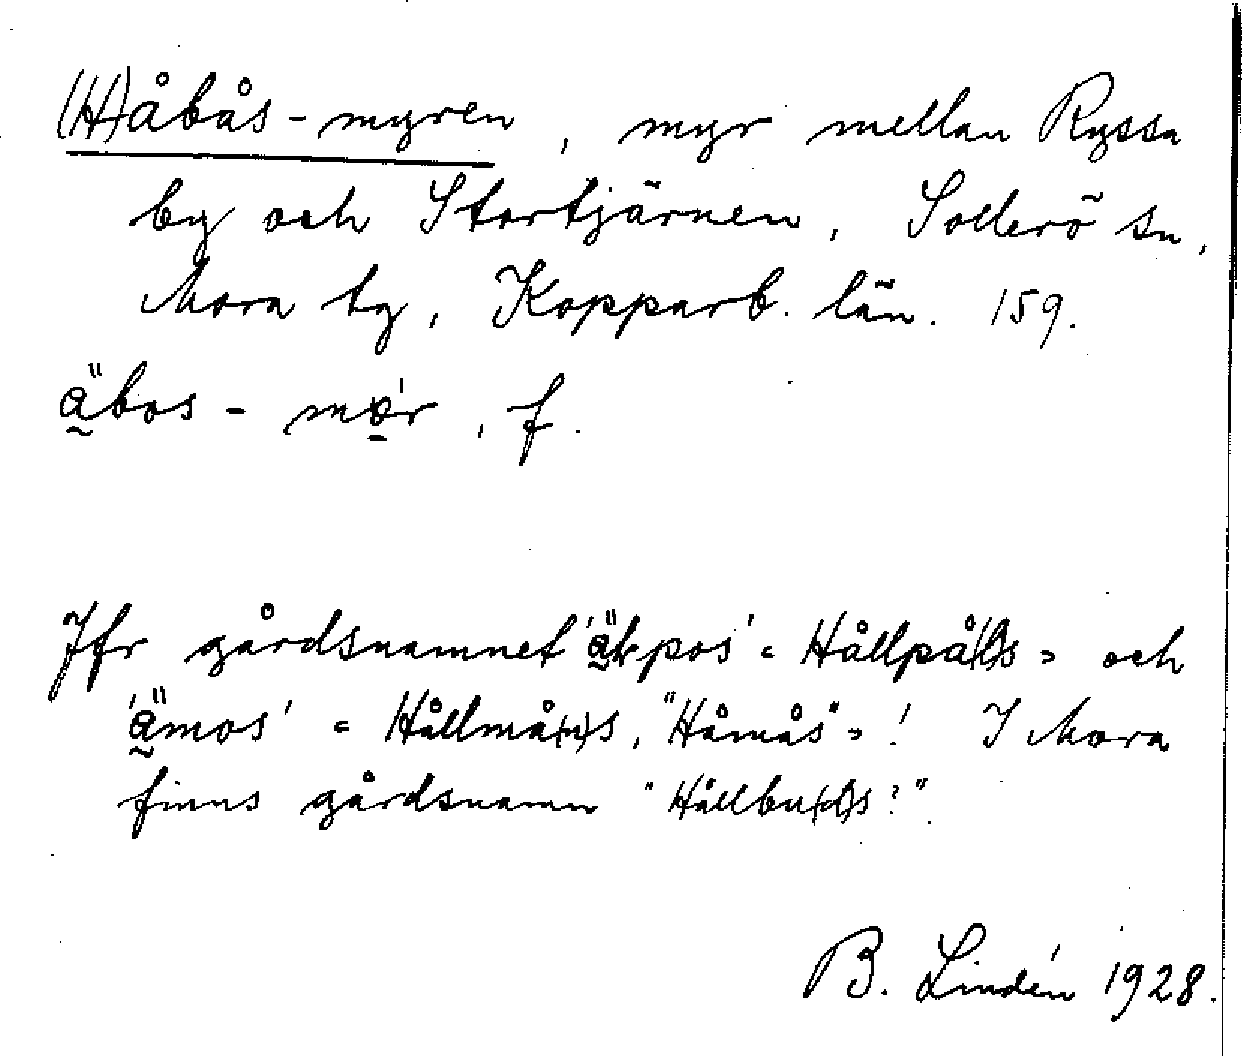 (H)åbås-myren, myr mellan Ryssa
by och Stortjärnen, Sollerö sn,
Mora tg, Kopparb. län. 159.
äbos - mor, f.
Jfr gårdsnamnet 'äkpos' = Hållpå(l)s = och
'ämos' = Hållmå(n)s, "Håmås" = ! I Mora
finns gårdsnamn "Hållbu(d)s?".
B. Lindén 1928.